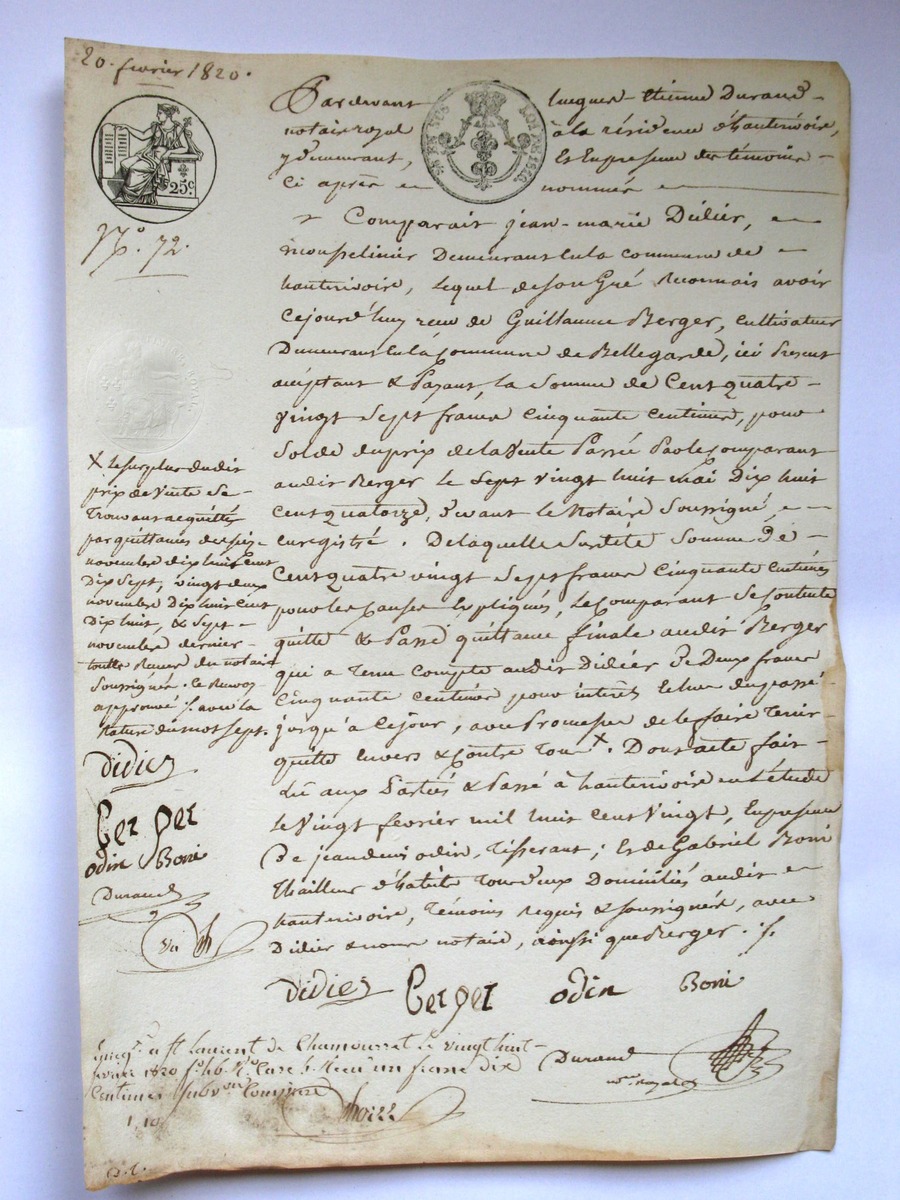 20. février 1820.
25c.
N.º 72.
Pardevant jacques-Etienne Durand
notaire royal à la résidence d'hauterivoire,
y demeurant, Et En presence des témoins
ci après nommés
Comparait jean-marie Didier,
mousselinier Demeurant En la commune de
hauterivoire, Lequel de son Gré Reconnait avoir
Cejourd'huy reçu de Guillaume Berger, Cultivateur
Demeurant En la Commune de Bellegarde, ici Present
acceptant & Payant, la Somme de Cent quatre
vingt Sept francs Cinquante Centimes, pour
Solde du prix de la Vente Passée Par le Comparant
audit Berger le Sept vingt huit mai Dix huit
Cent quatorze, devant le Notaire Soussigné,
Enregistré. De laquelle Susdite Somme De
Cent quatre vingt Sept francs Cinquante Centimes
pour les Causes Expliquées, le Comparant Se Contente
quitte & Passe quittance finale audit Berger
qui a Tenu Compte audit Didier De Deux francs
Cinquante Centimes pour intérêts Echus du passé
jusqu'à Ce jour, avec Promesse de le faire Tenir
quitte Envers & Contre Tous X. Dont acte fait
Lu aux Parties & Passé à hauterivoire En l'étude
Le Vingt février mil huit Cent Vingt, En presence
De jean denis odin, Tisserant; Et de Gabriel Boni
Thailleur d'habits Tous Deux Domiciliés audit
hauterivoire, Témoins Requis & Soussignés, avec
Didier & nous notaire, ainsi que Berger. /.
X Le surplus dudit
prix de Vente Se
Trouvant acquitté
par quittances des six
novembre dix huit Cent
Dix Sept, vingt deux
novembre Dix huit Cent
Dix huit, & Sept
novembre dernier
toutes Reçues du notaire
Soussigné. Le Renvoi
approuvé /. avec la
Rature du mot Sept.
Didier
Berger
odin Boni
Durand
Didier Berger odin Boni
Durand
Nre royal
Enregé à St Laurent de Chamousset Le vingt huit
février 1820 fº 46 Rº Case 4. Reçu un franc dix
Centimes Subvon Comprise
1,10